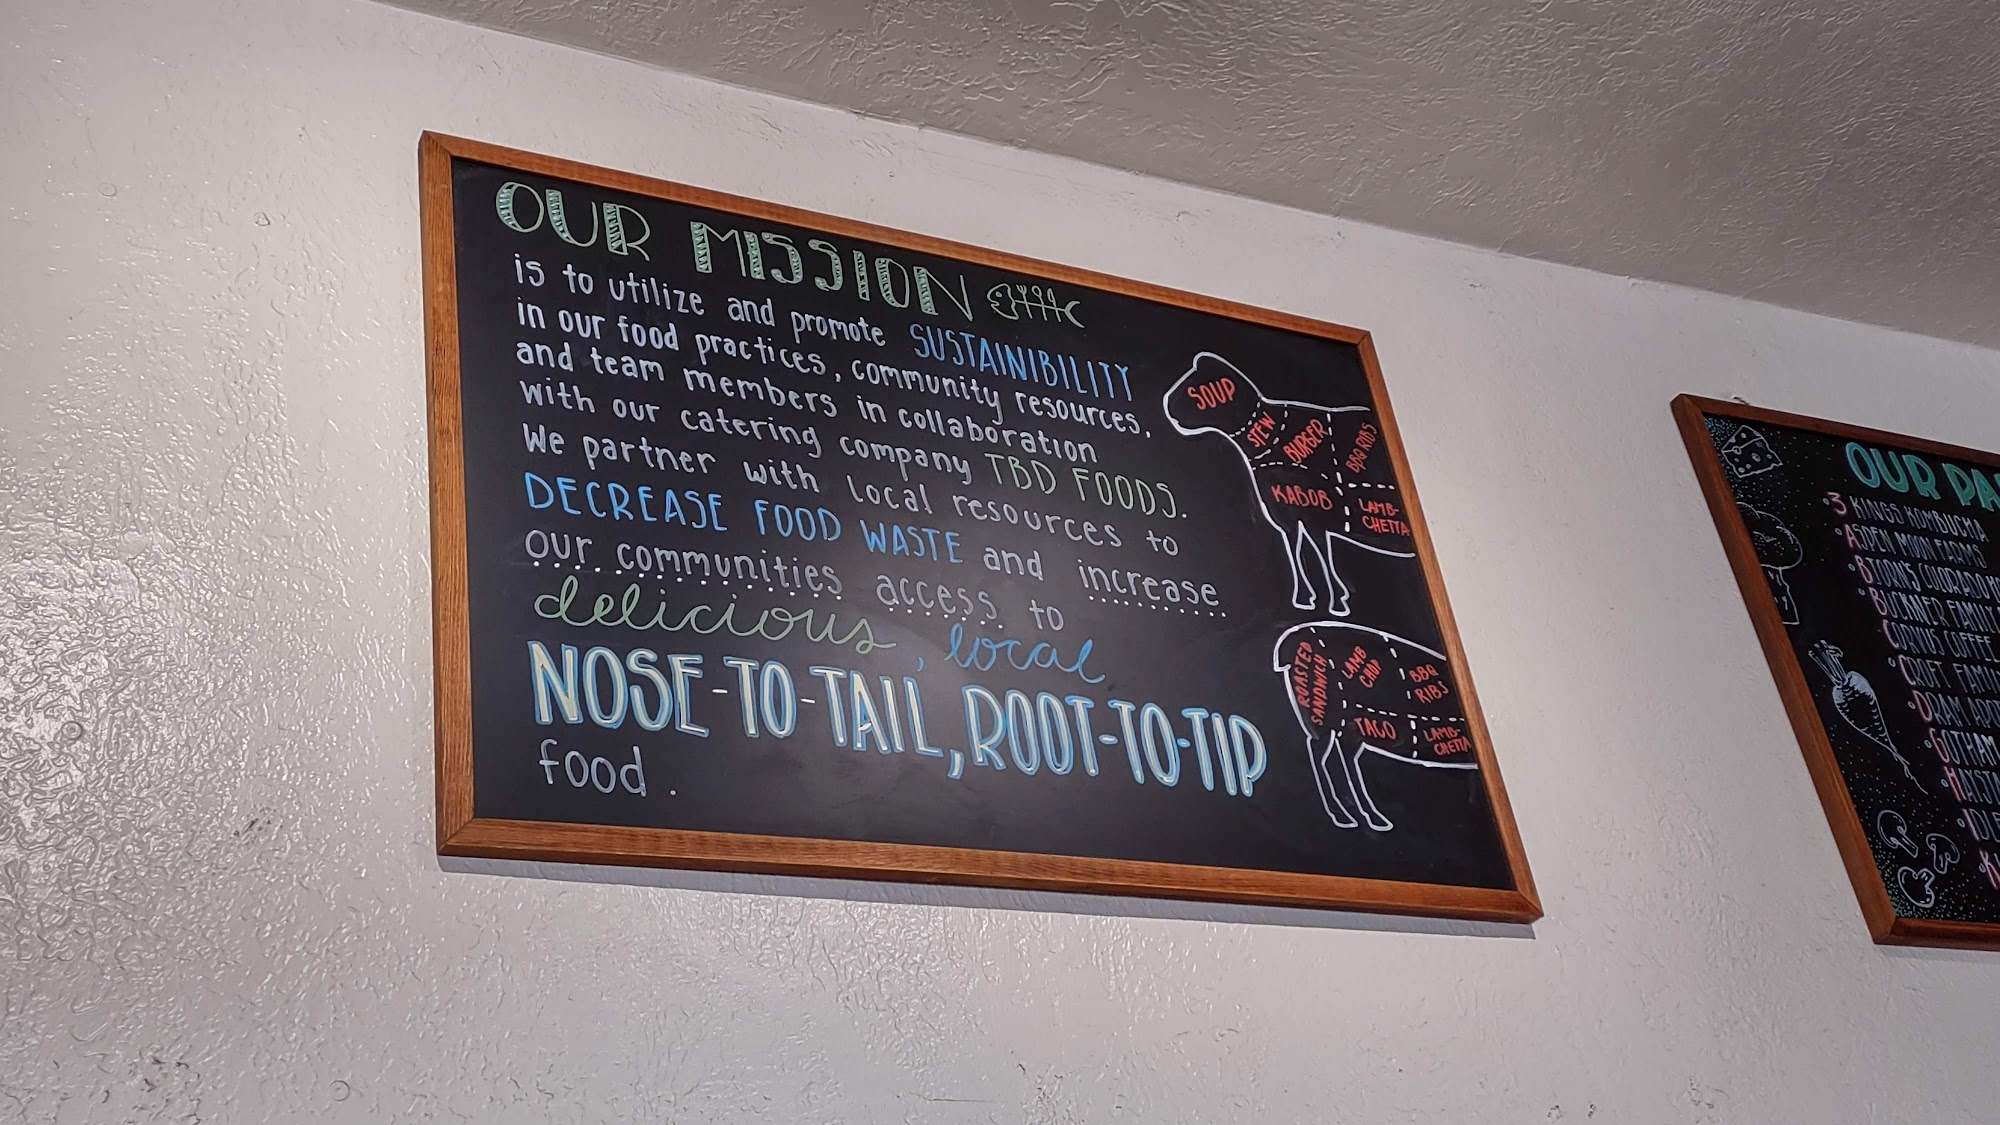 OUR MISSION
is to utilize and promote SUSTAINIBILITY
in our food practices, community resources,
and team members in collaboration
with our catering company TBD FOODS.
We partner with local resources to
DECREASE FOOD WASTE and increase
our communities access to
delicious, local
NOSE-TO-TAIL, ROOT-TO-TIP
food.
SOUP
STEW
BURGER
BBQ RIBS
KABOB
LAMB-
CHETTA
ROASTED
SANDWICH
LAMB
CHOP
BBQ
RIBS
TACO
LAMB-
CHETTA
OUR PA
3 KINGS KOMBUCHA
ASPEN MOON FARMS
BUCKNER FAMILY
COFFEE
CROFT FAMILY
DRAM
GOTHAM